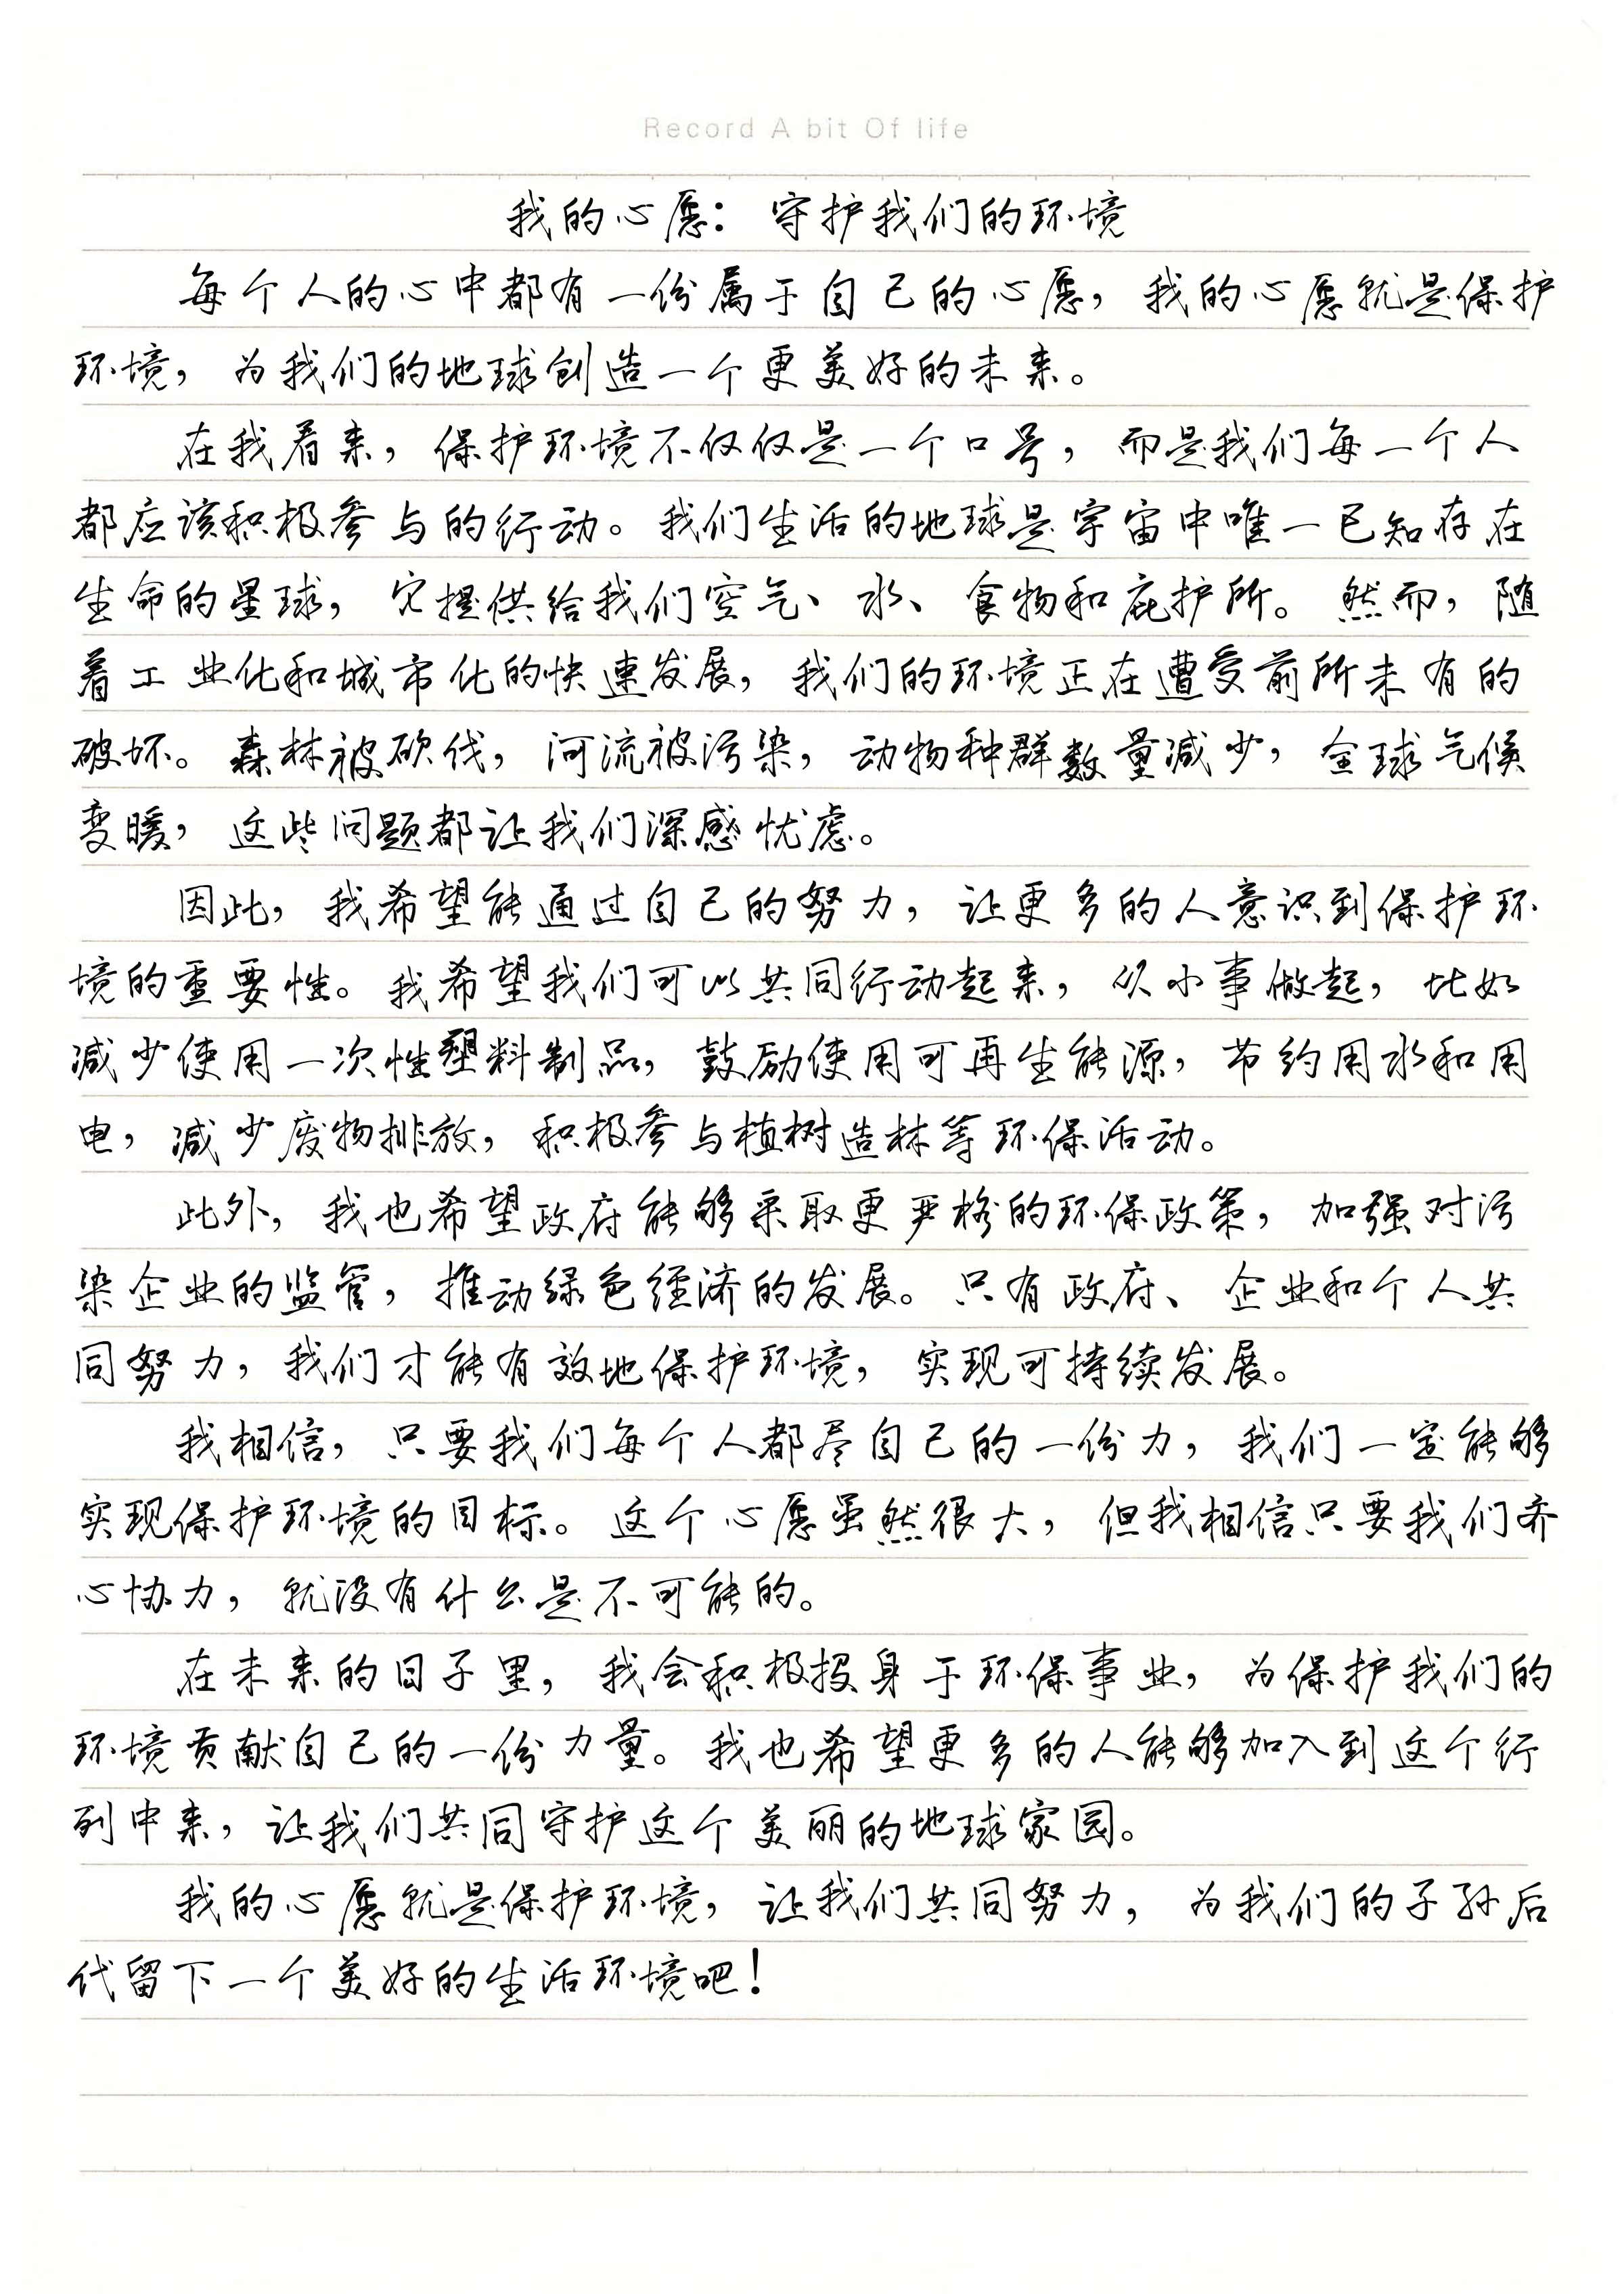 Record A bit Of life
我的心愿：守护我们的环境
每个人的心中都有一份属于自己的心愿，我的心愿就是保护
环境，为我们的地球创造一个更美好的未来。
在我看来，保护环境不仅仅是一个口号，而是我们每一个人
都应该积极参与的行动。我们生活的地球是宇宙中唯一已知存在
生命的星球，它提供给我们空气、水、食物和庇护所。然而，随
着工业化和城市化的快速发展，我们的环境正在遭受前所未有的
破坏。森林被砍伐，河流被污染，动物种群数量减少，全球气候
变暖，这些问题都让我们深感忧虑。
因此，我希望能通过自己的努力，让更多的人意识到保护环
境的重要性。我希望我们可以共同行动起来，从小事做起，比如
减少使用一次性塑料制品，鼓励使用可再生能源，节约用水和用
电，减少废物排放，积极参与植树造林等环保活动。
此外，我也希望政府能够采取更严格的环保政策，加强对污
染企业的监管，推动绿色经济的发展。只有政府、企业和个人共
同努力，我们才能有效地保护环境，实现可持续发展。
我相信，只要我们每个人都尽自己的一份力，我们一定能够
实现保护环境的目标。这个心愿虽然很大，但我相信只要我们齐
心协力，就没有什么是不可能的。
在未来的日子里，我会积极投身于环保事业，为保护我们的
环境贡献自己的一份力量。我也希望更多的人能够加入到这个行
列中来，让我们共同守护这个美丽的地球家园。
我的心愿就是保护环境，让我们共同努力，为我们的子孙后
代留下一个美好的生活环境吧！